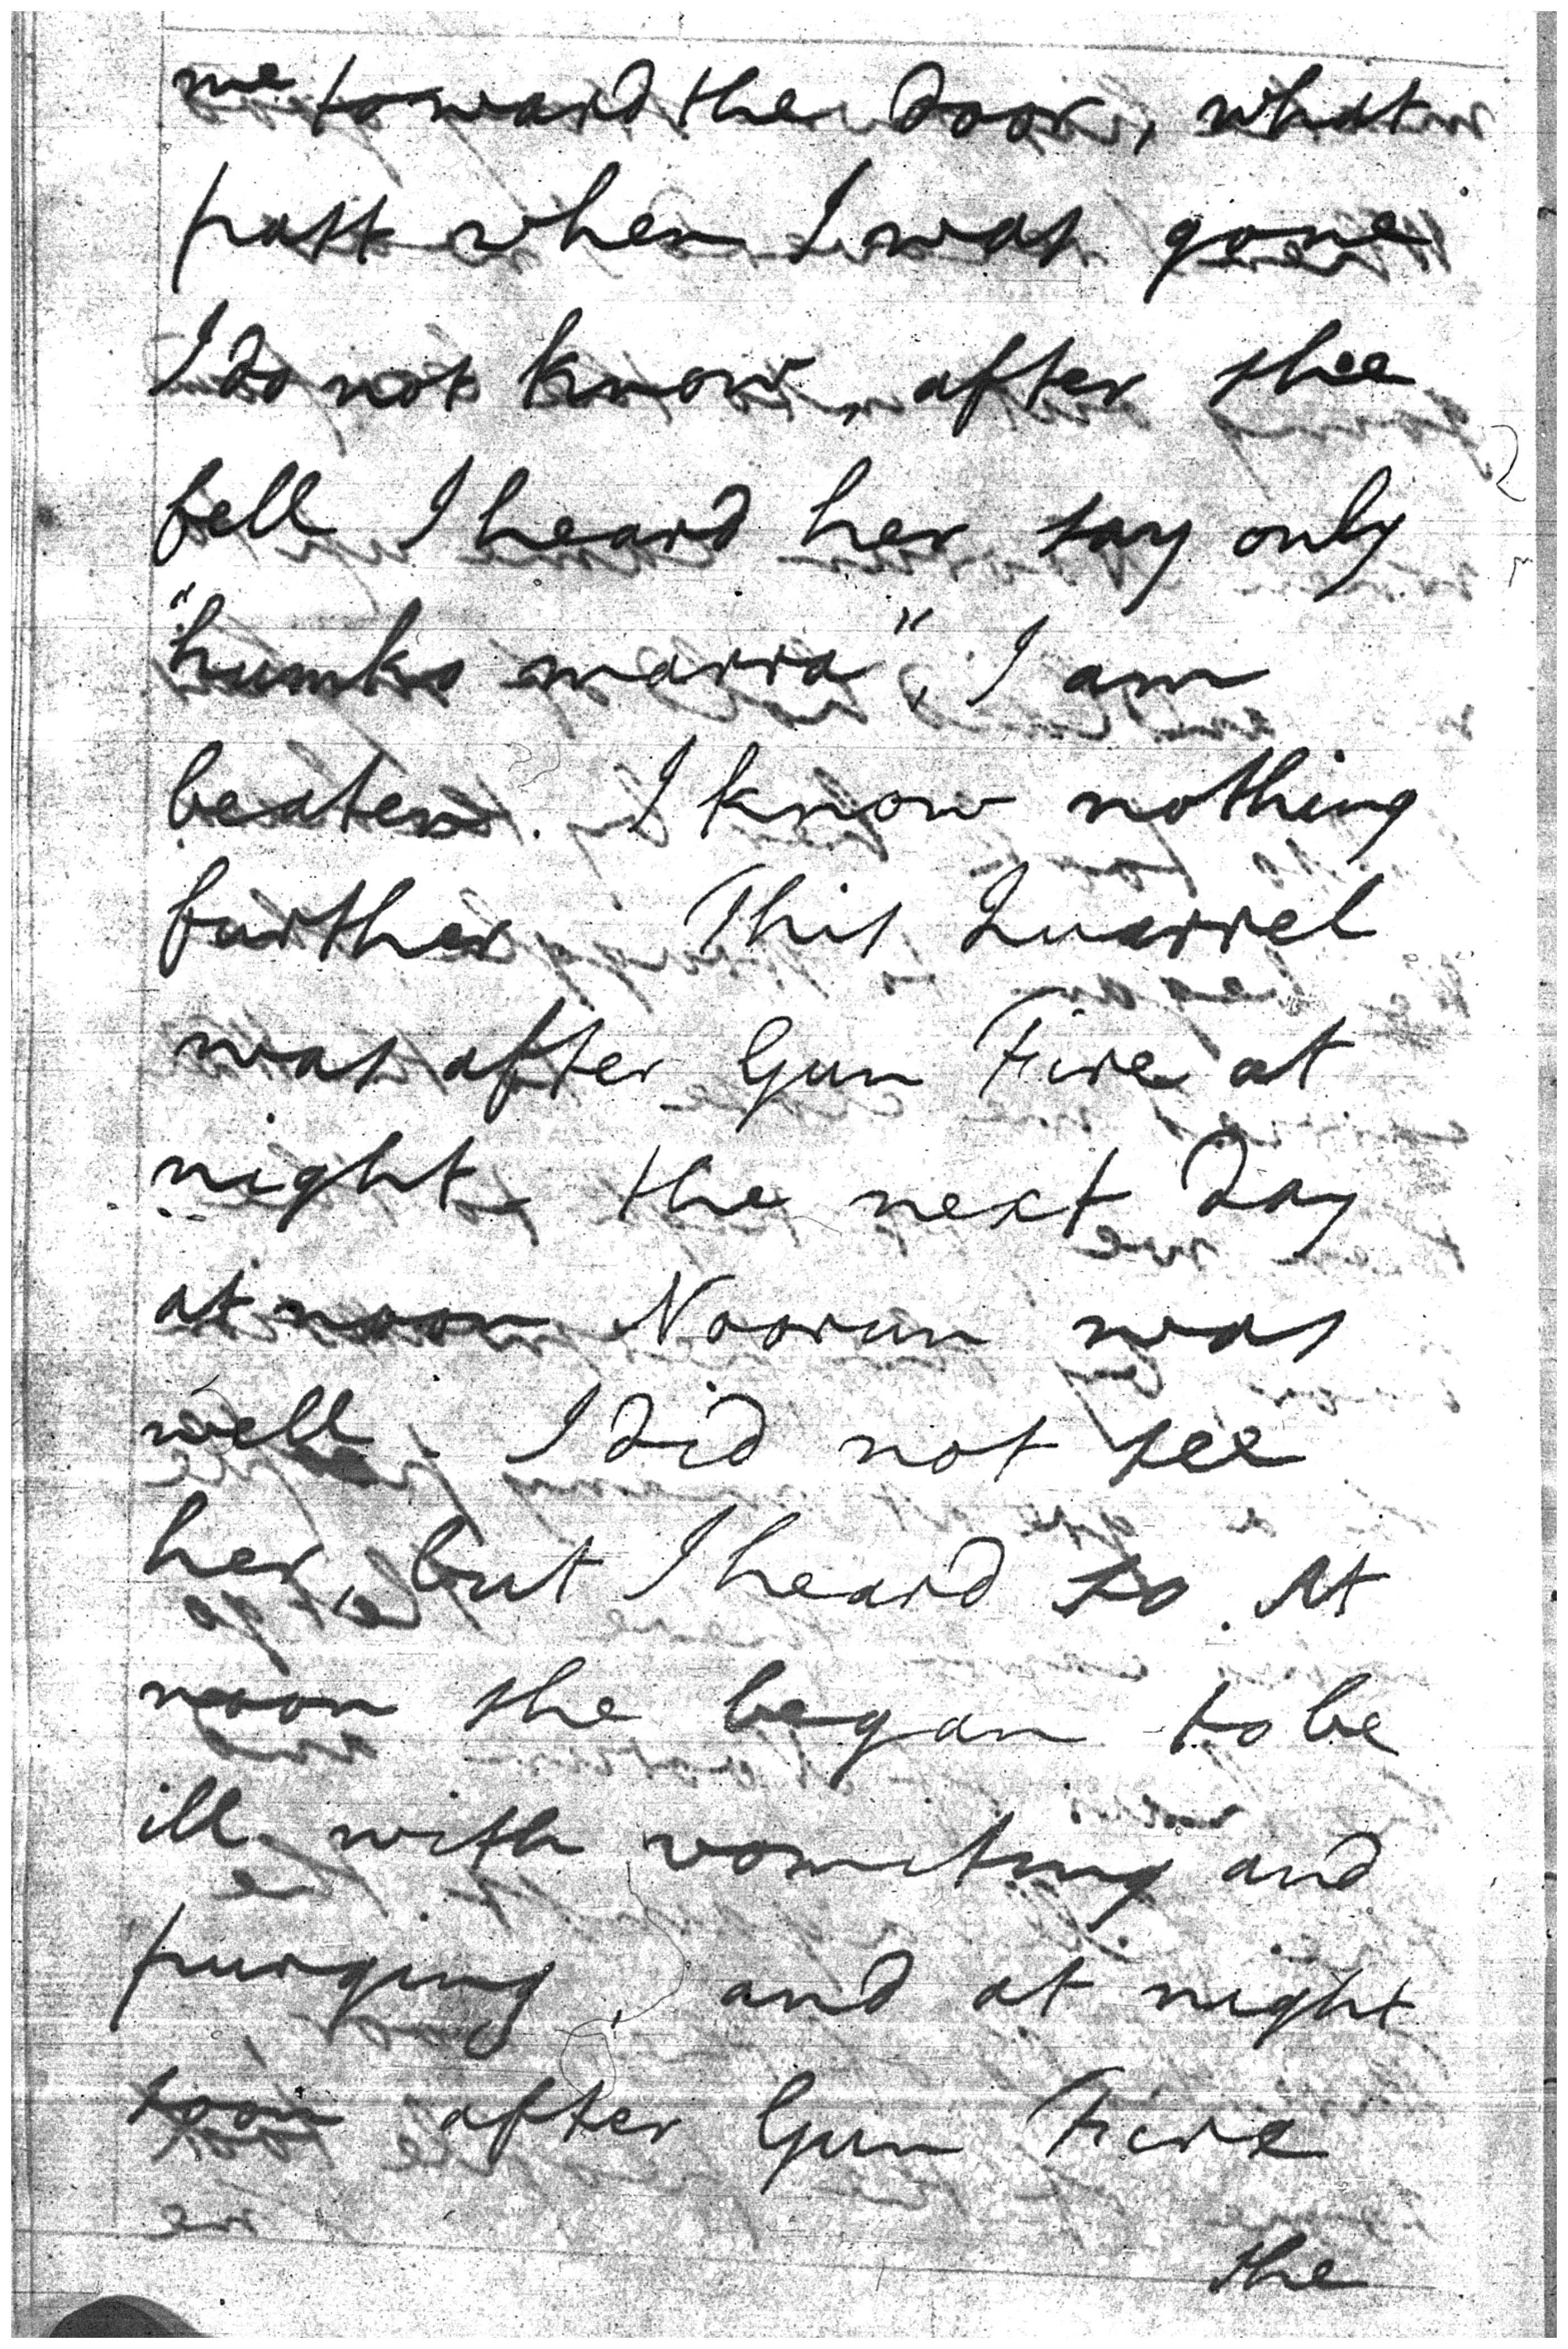 me toward the Door, what
past when I was gone
I do not know, after shee
fell I heard her say only
"humko marra", I am
beaten. I know nothing
further This Quarrel
was after Gun Fire at
night, the next Day
at noon Noorun was
well. I did not see
her, but I heard so. At
noon she began to be
ill with vomiting and
purging, and at night
soon after Gun Fire
the